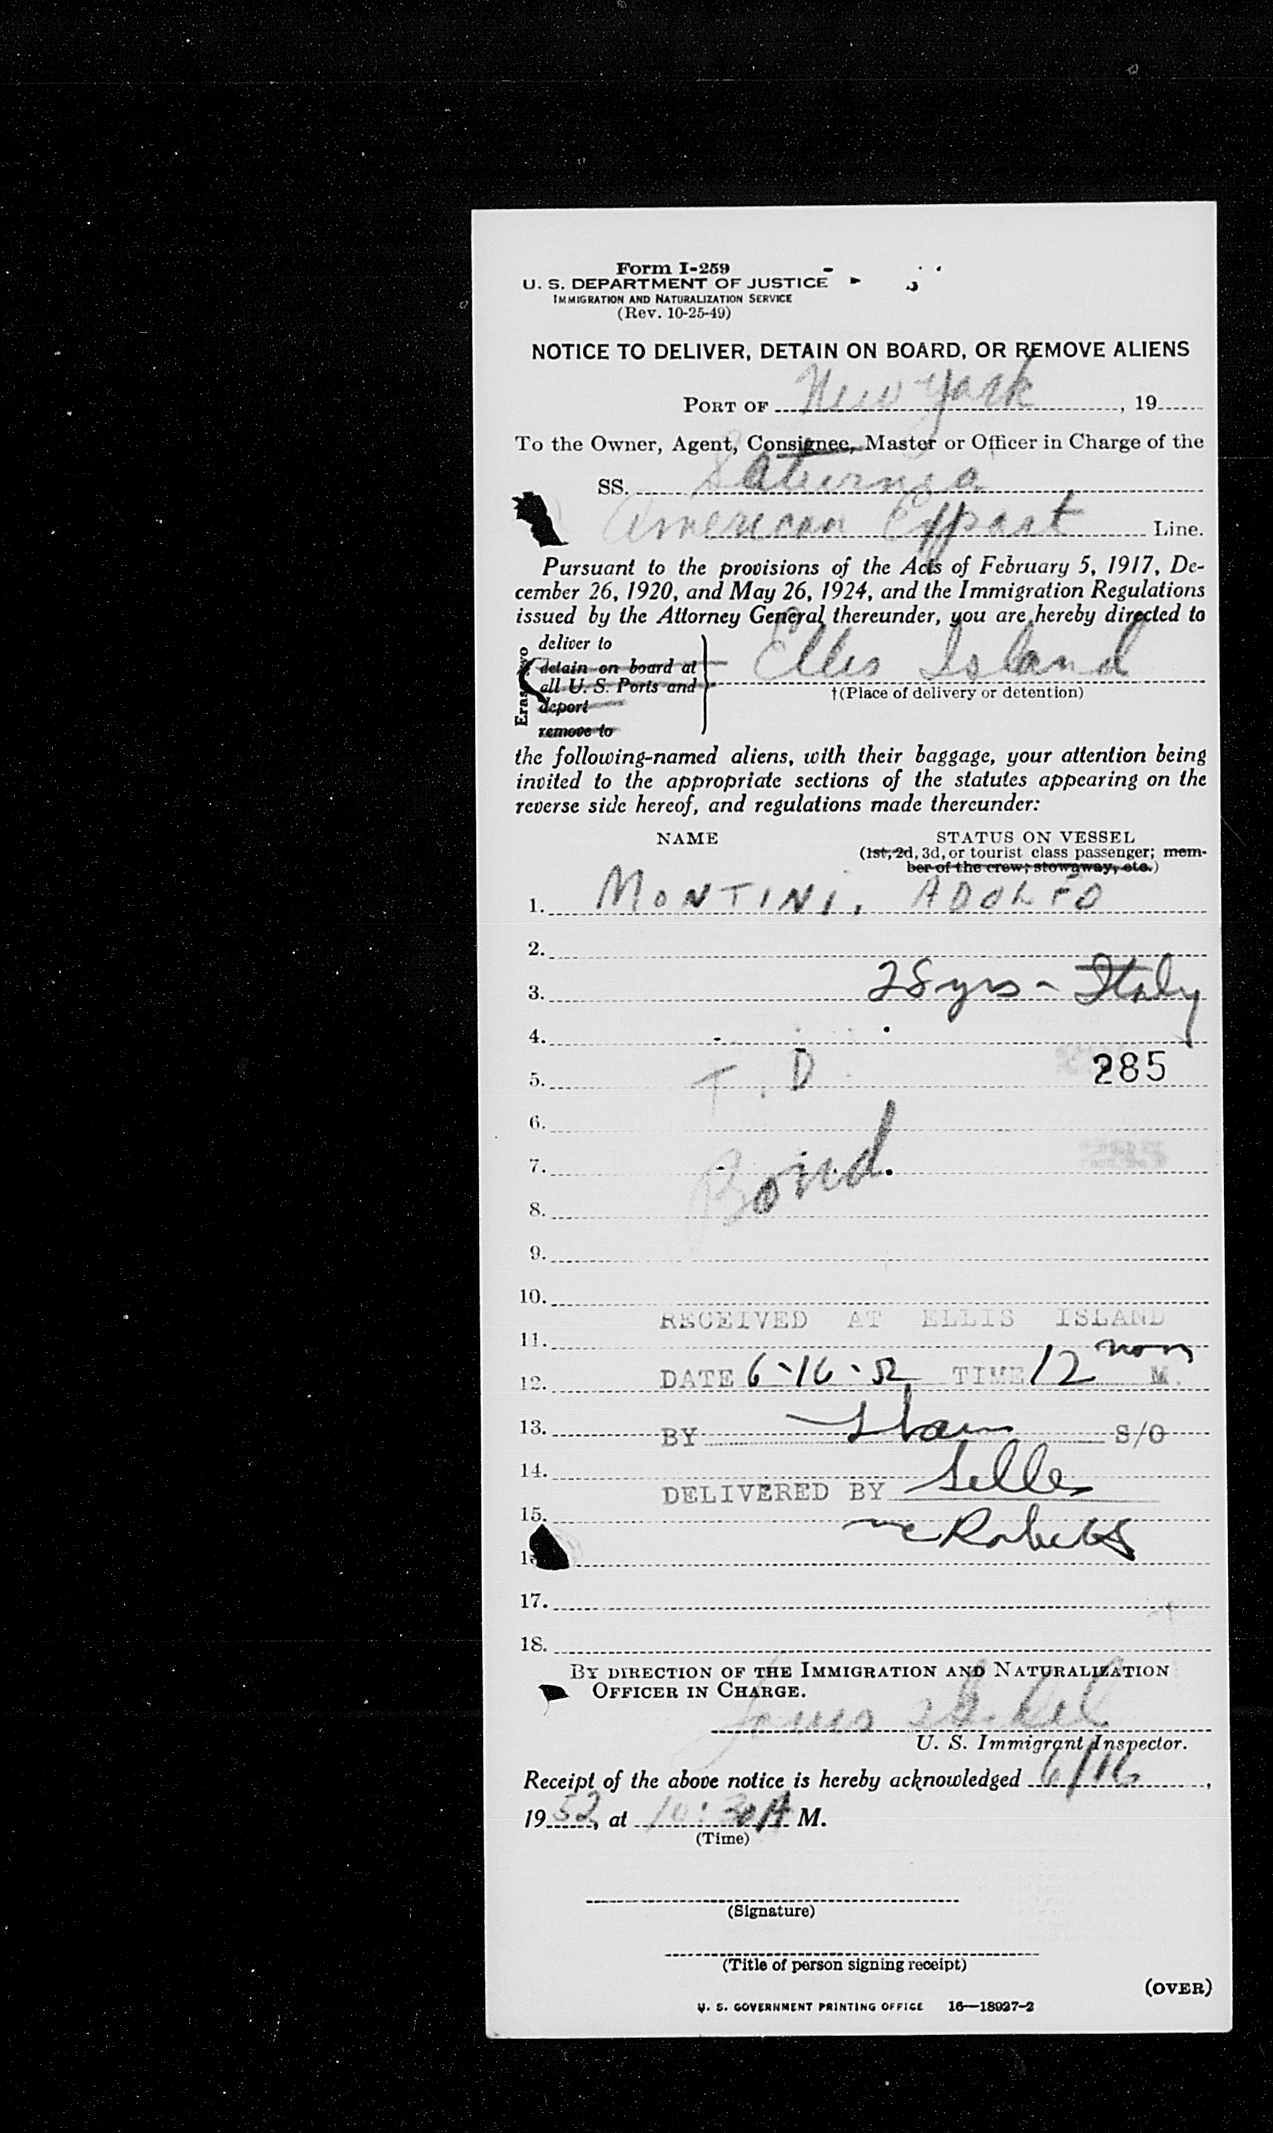 Form I-259
U. S. DEPARTMENT OF JUSTICE
IMMIGRATION AND NATURALIZATION SERVICE
(Rev. 10-25-49)
NOTICE TO DELIVER, DETAIN ON BOARD, OR REMOVE ALIENS
PORT OF New York, 19
To the Owner, Agent, Consignee, Master or Officer in Charge of the
SS. Saturnia
American Export Line.
Pursuant to the provisions of the Acts of February 5, 1917, De-
cember 26, 1920, and May 26, 1924, and the Immigration Regulations
issued by the Attorney General thereunder, you are hereby directed to
deliver to
detain on board at
all U. S. Ports and
deport
remove to
Ellis Island
†(Place of delivery or detention)
the following-named aliens, with their baggage, your attention being
invited to the appropriate sections of the statutes appearing on the
reverse side hereof, and regulations made thereunder:
NAME STATUS ON VESSEL
(1st, 2d, 3d, or tourist class passenger; mem-
ber of the crew; stowaway, etc.)
1. MONTINI, ADOLFO
2.
3. 28 yrs - Italy
4.
5. T. D. 285
6.
7. Bond.
8.
9.
10.
RECEIVED AT ELLIS ISLAND
11.
12. DATE 6-16-52 TIME 12 noon M.
13. BY S/O
14.
DELIVERED BY
15.
McRoberts
17.
18.
BY DIRECTION OF THE IMMIGRATION AND NATURALIZATION
OFFICER IN CHARGE.
U. S. Immigrant Inspector.
Receipt of the above notice is hereby acknowledged 6/16,
1952, at 10:30 A M.
(Time)
(Signature)
(Title of person signing receipt)
(OVER)
U. S. GOVERNMENT PRINTING OFFICE 16—18927-2